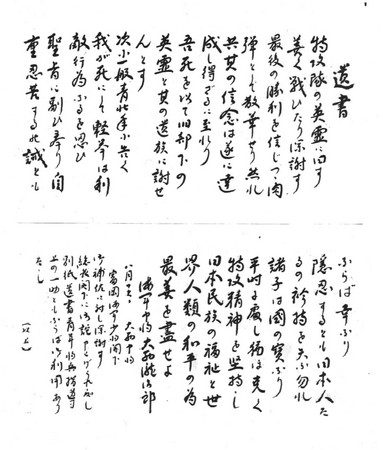 遺書
特攻隊の英霊に曰す
善く戦ひたり深謝す
最後の勝利を信じつゝ肉
弾として散華せり然れ
共其の信念は遂に達
成し得ざるに至れり
吾死を以て旧部下の
英霊と其の遺族に謝せ
んとす
次に一般青壮年に告ぐ
我が死にして軽挙は利
敵行為なるを思ひ
聖旨に副ひ奉り自
重忍苦するの誡とも
ならば幸なり
隠忍するとも日本人た
るの矜持を失ふ勿れ
諸子は國の寶なり
平時に處し猶ほ克く
特攻精神を堅持し
日本民族の福祉と世
界人類の和平の為
最善を盡せよ
海軍中将大西瀧治郎
八月十六日 大西中将
富岡海軍少将閣下
御補佐に対し深謝す
総長閣下に御詫申上げられたし
別紙遺書青年将兵指導
上の一助ともならば御利用あり
たし
(以上)